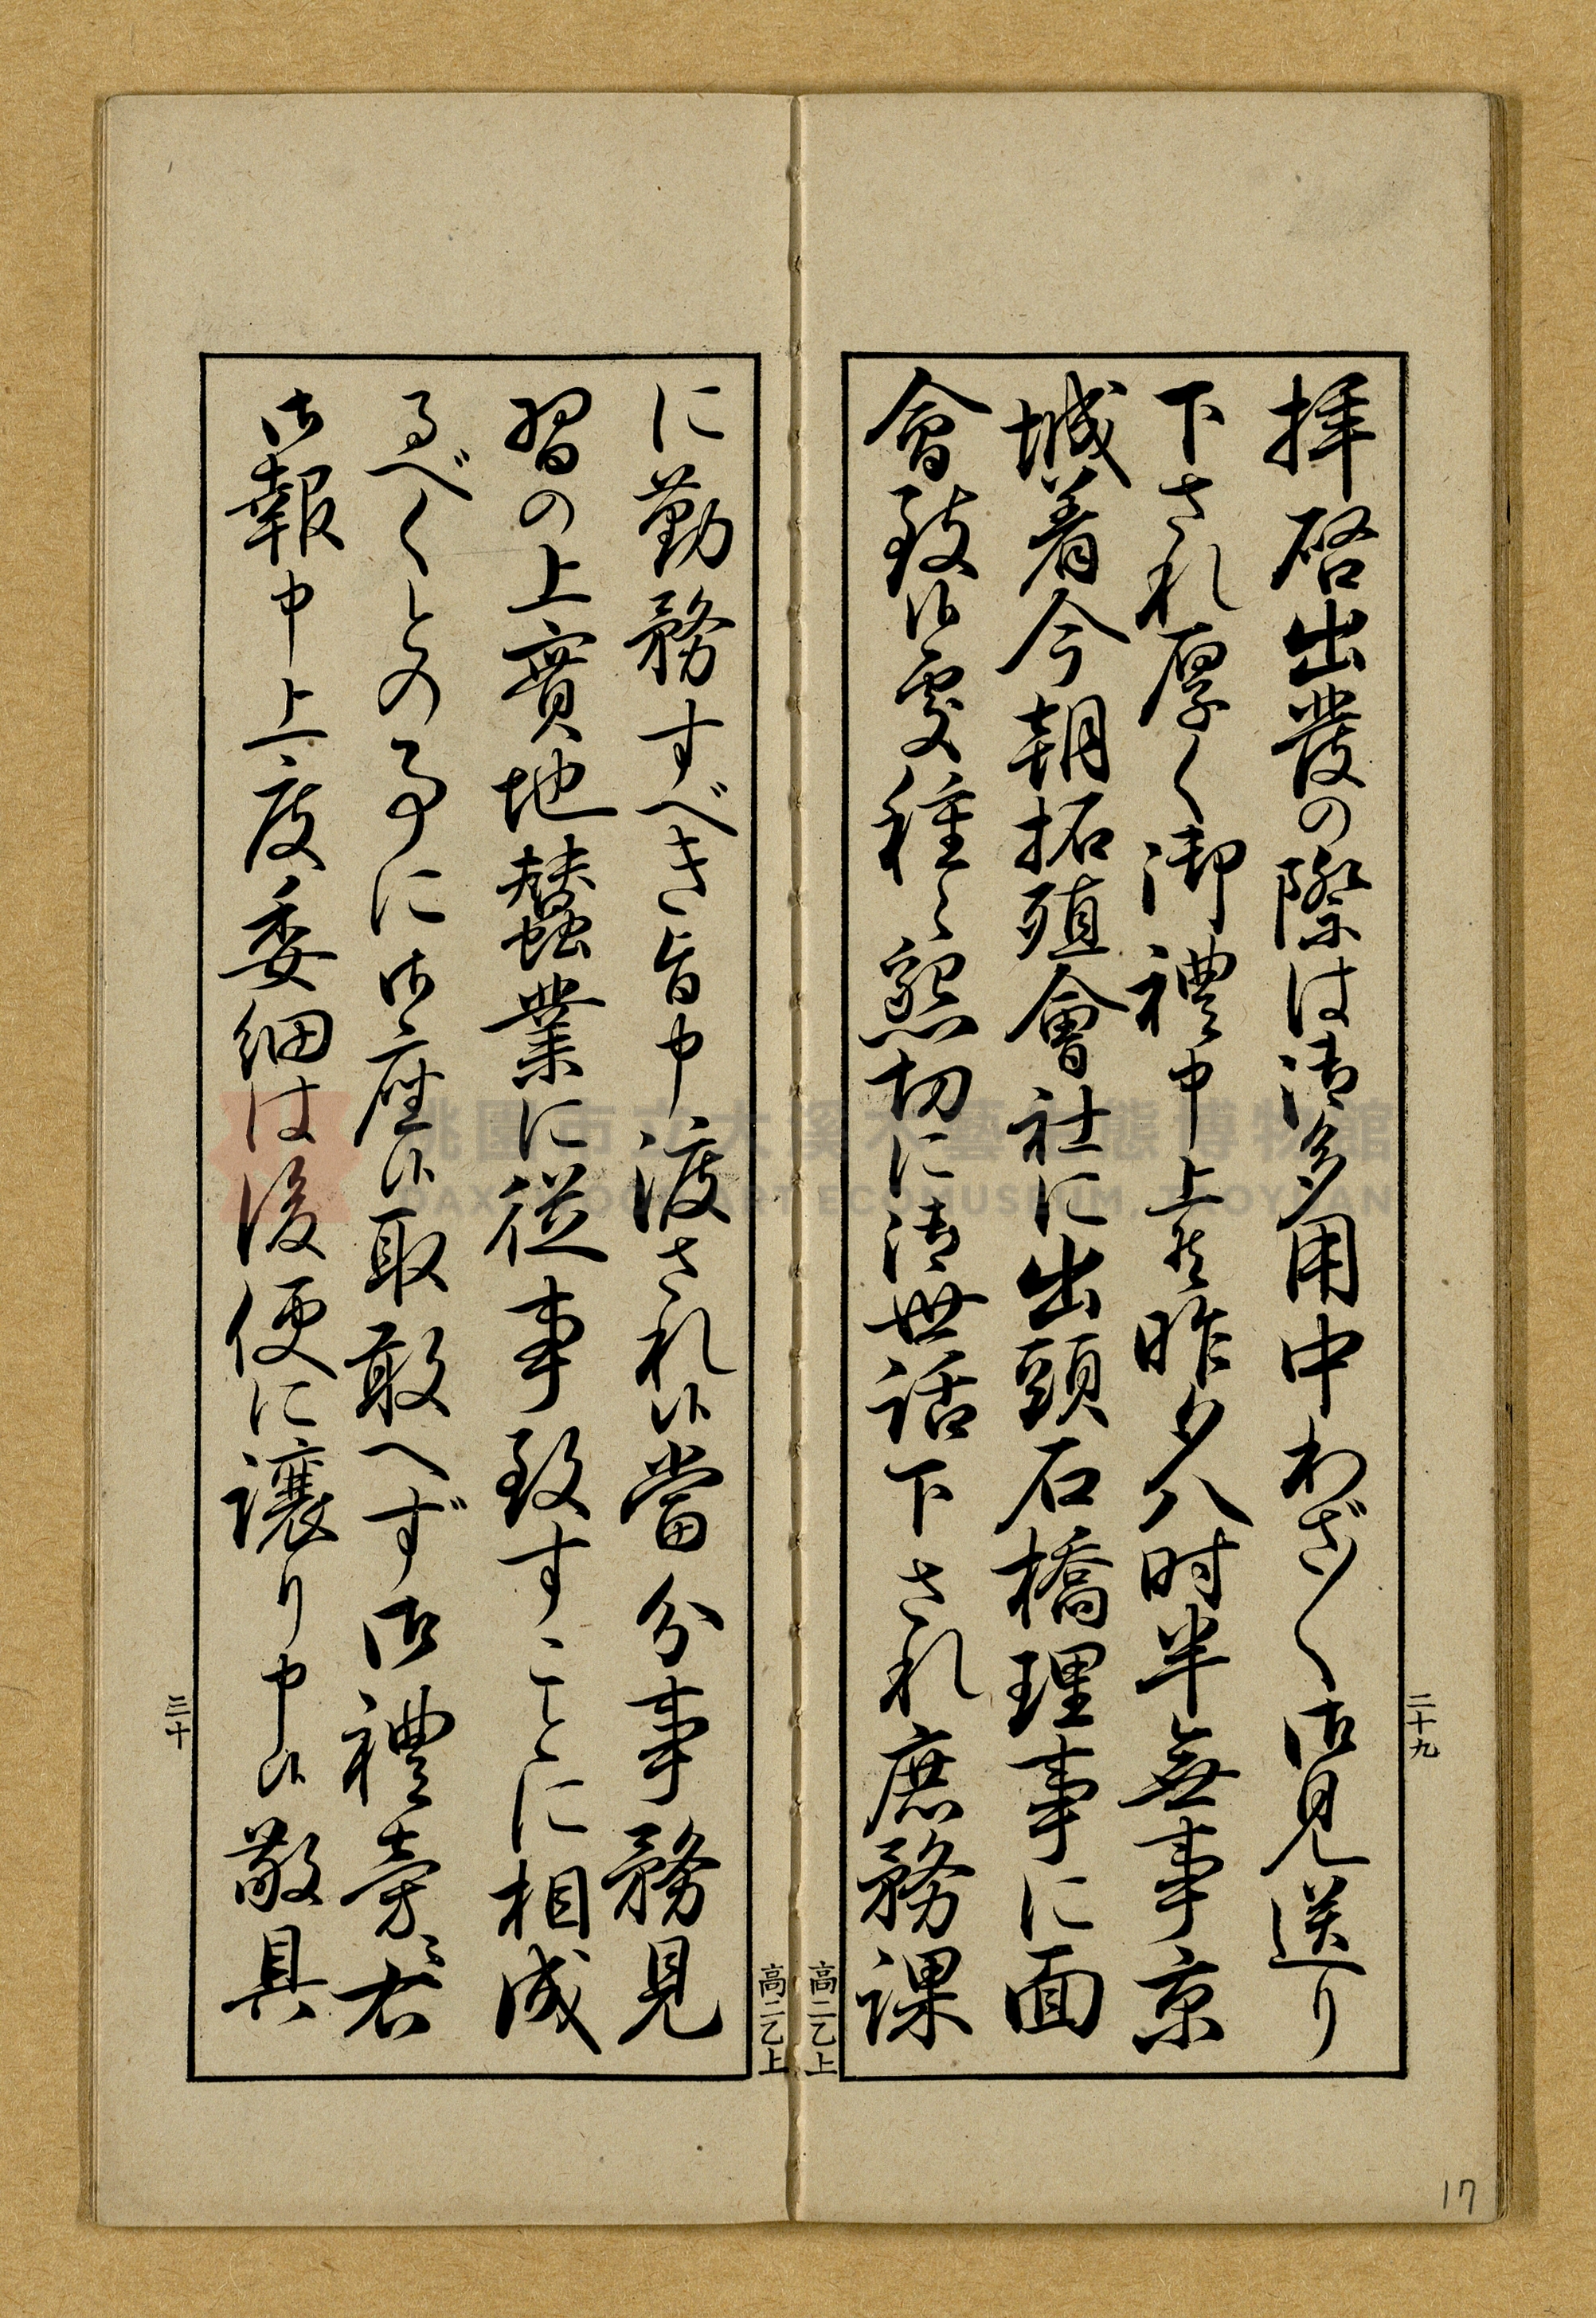 拝啓出發の際は御多用中わざ〱御見送り
下され厚く御禮申上候昨夕八时半無事京
城着今朝拓殖會社に出頭石橋理事に面
會致候處種々懇切に御世話下され庶務課
二十九
高二乙上
に勤務すべき旨申渡され候當分事務見
習の上實地蠶業に從事致すことに相成
るべくとの事に御座候取敢へず御禮旁々右
御報申上度委細は後便に讓り申候敬具
三十
高二乙上
17
桃園市立大溪木藝生態博物館
DAXI WOOD ART ECOMUSEUM, TAOYUAN